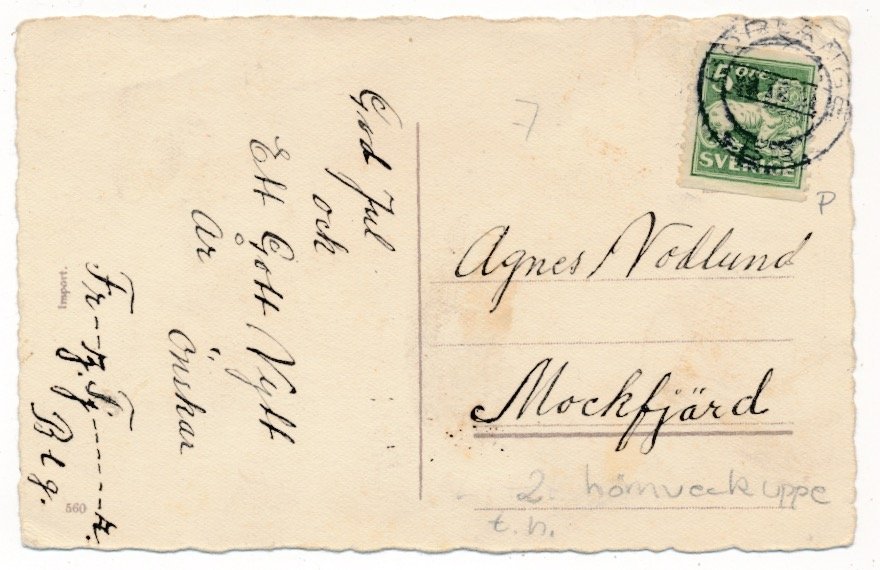 God Jul
och
Ett Gott Nytt
År
Önskar
Fr--
Blg.
Import.
560
7
BORLÄNGE
5 ÖRE
SVERIGE
P
Agnes Nodlund
Mockfjärd
2. hörnveck uppe
t.h.